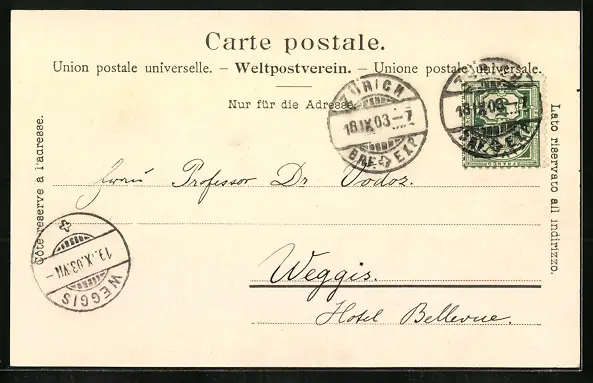 Carte postale.
Union postale universelle. – Weltpostverein. – Unione postale universale.
Nur für die Adresse.
Côté réservé à l'adresse.
Lato riservato all indirizzo.
ZÜRICH
18.IX.03.–7
BRF. EXP.
ZÜRICH
18.IX.03.–7
BRF. EXP.
Herrn Professor Dr Vodoz.
Weggis.
Hotel Bellevue.
19.IX.03.VII–
WEGGIS